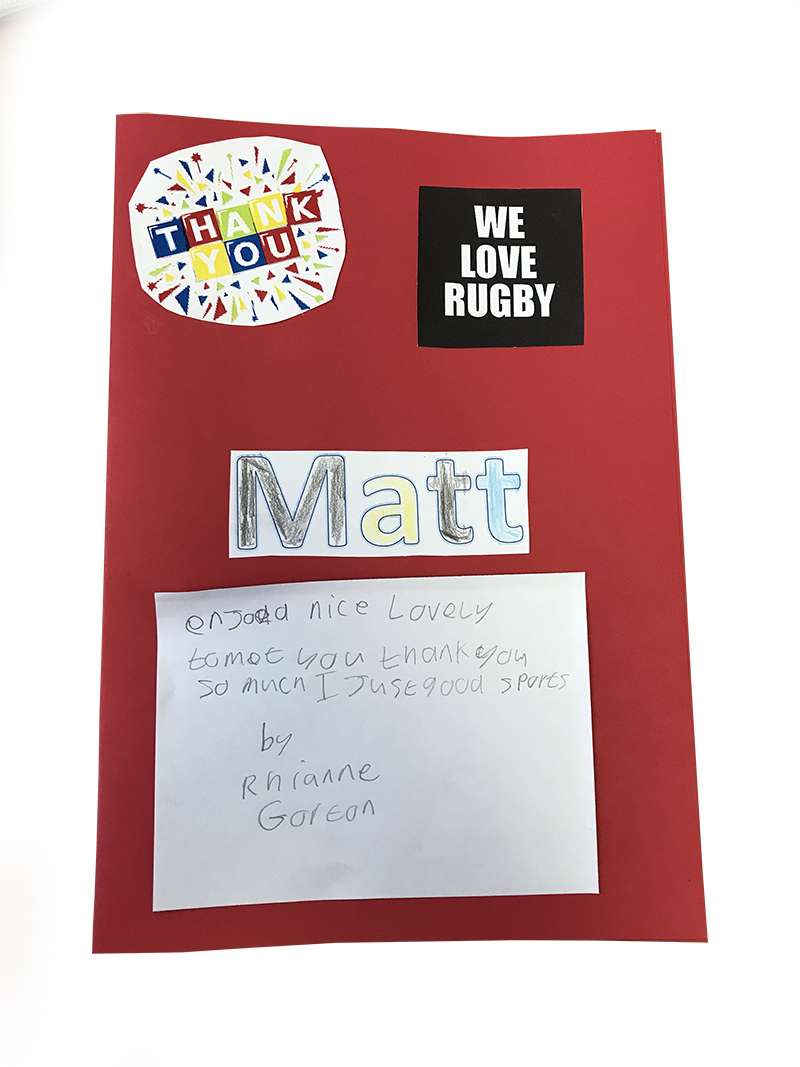 THANK
YOU
WE
LOVE
RUGBY
Matt
enjoed nice Lovely
tomet you thank you
so much I Just good sports
by
Rhianne
Gorton